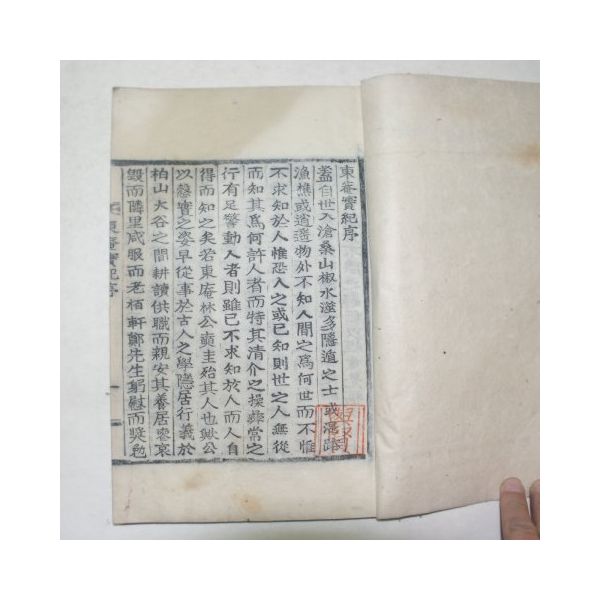 東菴實紀序
蓋自世入滄桑山椒水澨多隱遁之士或混跡
漁樵或逍遙物外不知人間之爲何世而不惟
不求知於人惟恐人之或已知則世之人無從
而知其爲何許人者而特其清介之操彝常之
行有足警動人者則雖已不求知於人而人自
得而知之矣若東庵林公奭圭殆其人也歟公
以慤實之姿早從事於古人之學隱居行義於
柏山大谷之間耕讀供職而親安其養居喪哀
毁而隣里咸服而老栢軒鄭先生躬慰而奬勉
東菴實紀序
一